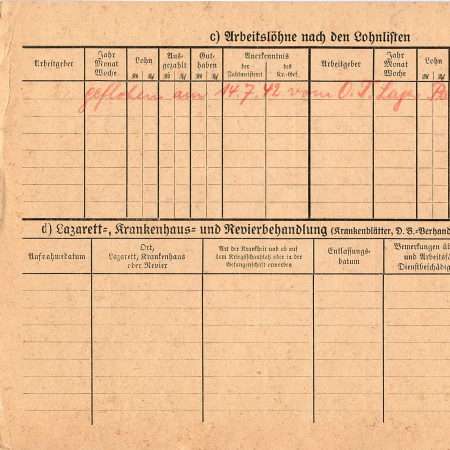 c) Arbeitslöhne nach den Lohnlisten
Arbeitgeber Jahr Monat Woche Lohn Aus- gezahlt Gut- haben Anerkenntnis der Zahlmeisterei des Kr.-Gef. Arbeitgeber Jahr Monat Woche Lohn
geflohen am 14.7.42 vom O. T. Lager
d) Lazarett-, Krankenhaus- und Revierbehandlung (Krankenblätter, D. B.-Verhand
Aufnahmedatum Ort, Lazarett, Krankenhaus oder Revier Art der Krankheit und ob auf dem Kriegsschauplatz oder in der Gefangenschaft erworden Entlassungs- datum Bemerkungen üb und Arbeitsfä Dienstbeschädig